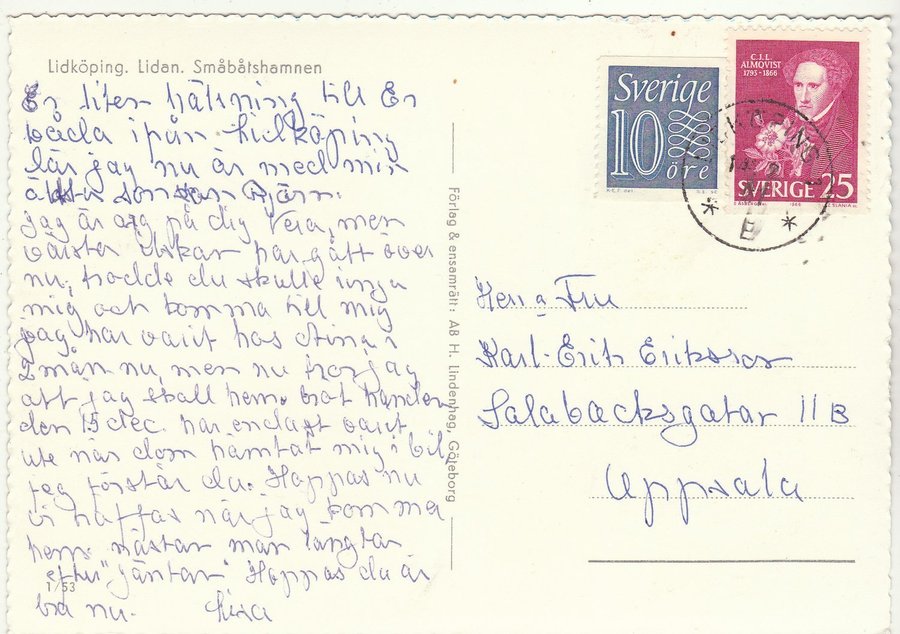 Lidköping. Lidan. Småbåtshamnen
En liten hälsning till Er
båda ifrån Lidköping
där jag nu är med min
äldste son Björn.
Jag är arg på dig Vera, men
va ilskan har gått över
nu, trodde du skulle ringa
mig och komma till mig
jag har varit hos Stina i
2 mån nu, men nu tror jag
att jag skall hem mot
den 15 dec. har endast varit
ute när dom hämtat mig i bil,
jag förstår du. Hoppas nu
vi träffas när jag kommer
hem. nästan man längtar
efter "jäntan" Hoppas du är
bra nu. Lisa
1/53
Förlag & ensamrätt: AB H. Lindenhag, Göteborg
Sverige
10
öre
C.J.L.
ALMQVIST
1793-1866
SVERIGE 25
LIDKÖPING
B
Herr o Fru
Karl-Erik Eriksson
Salabacksgatan 11 B
Uppsala